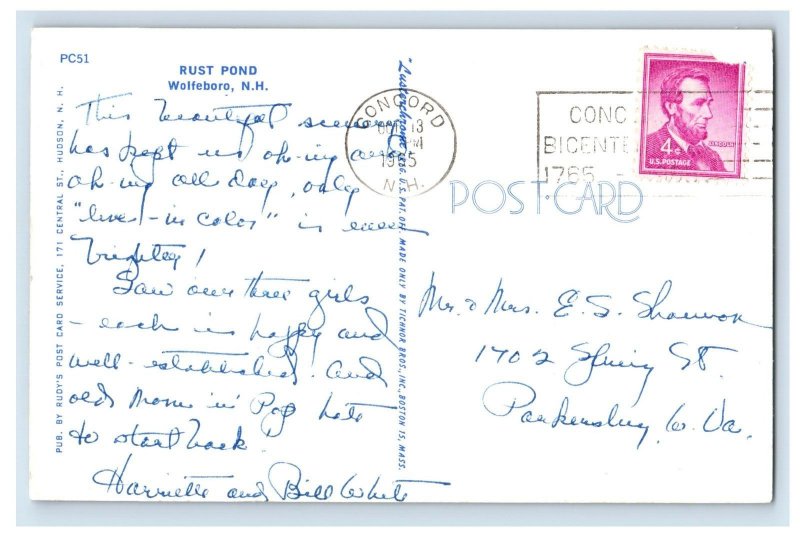 PC51
RUST POND
Wolfeboro, N.H.
This beautiful scenery
has kept us oh-ing and
ah-ing all day, only
"live-in color" is even
brighter!
Saw our three girls
- each is happy and
well-established. And
old Mom 'n' Pop hate
to start back.
Harriette and Bill White
PUB. BY RUDY'S POST CARD SERVICE, 171 CENTRAL ST., HUDSON, N. H.
"Lusterchrome" REG. U.S. PAT. OFF. MADE ONLY BY TICHNOR BROS., INC., BOSTON 15, MASS.
CONCORD
OCT 13
PM
1965
N.H.
CONC
BICENTE
1765 -
4¢
LINCOLN
U.S. POSTAGE
POST CARD
Mr. & Mrs. E. S.
1702 Spring St.
Parkersburg, W. Va.